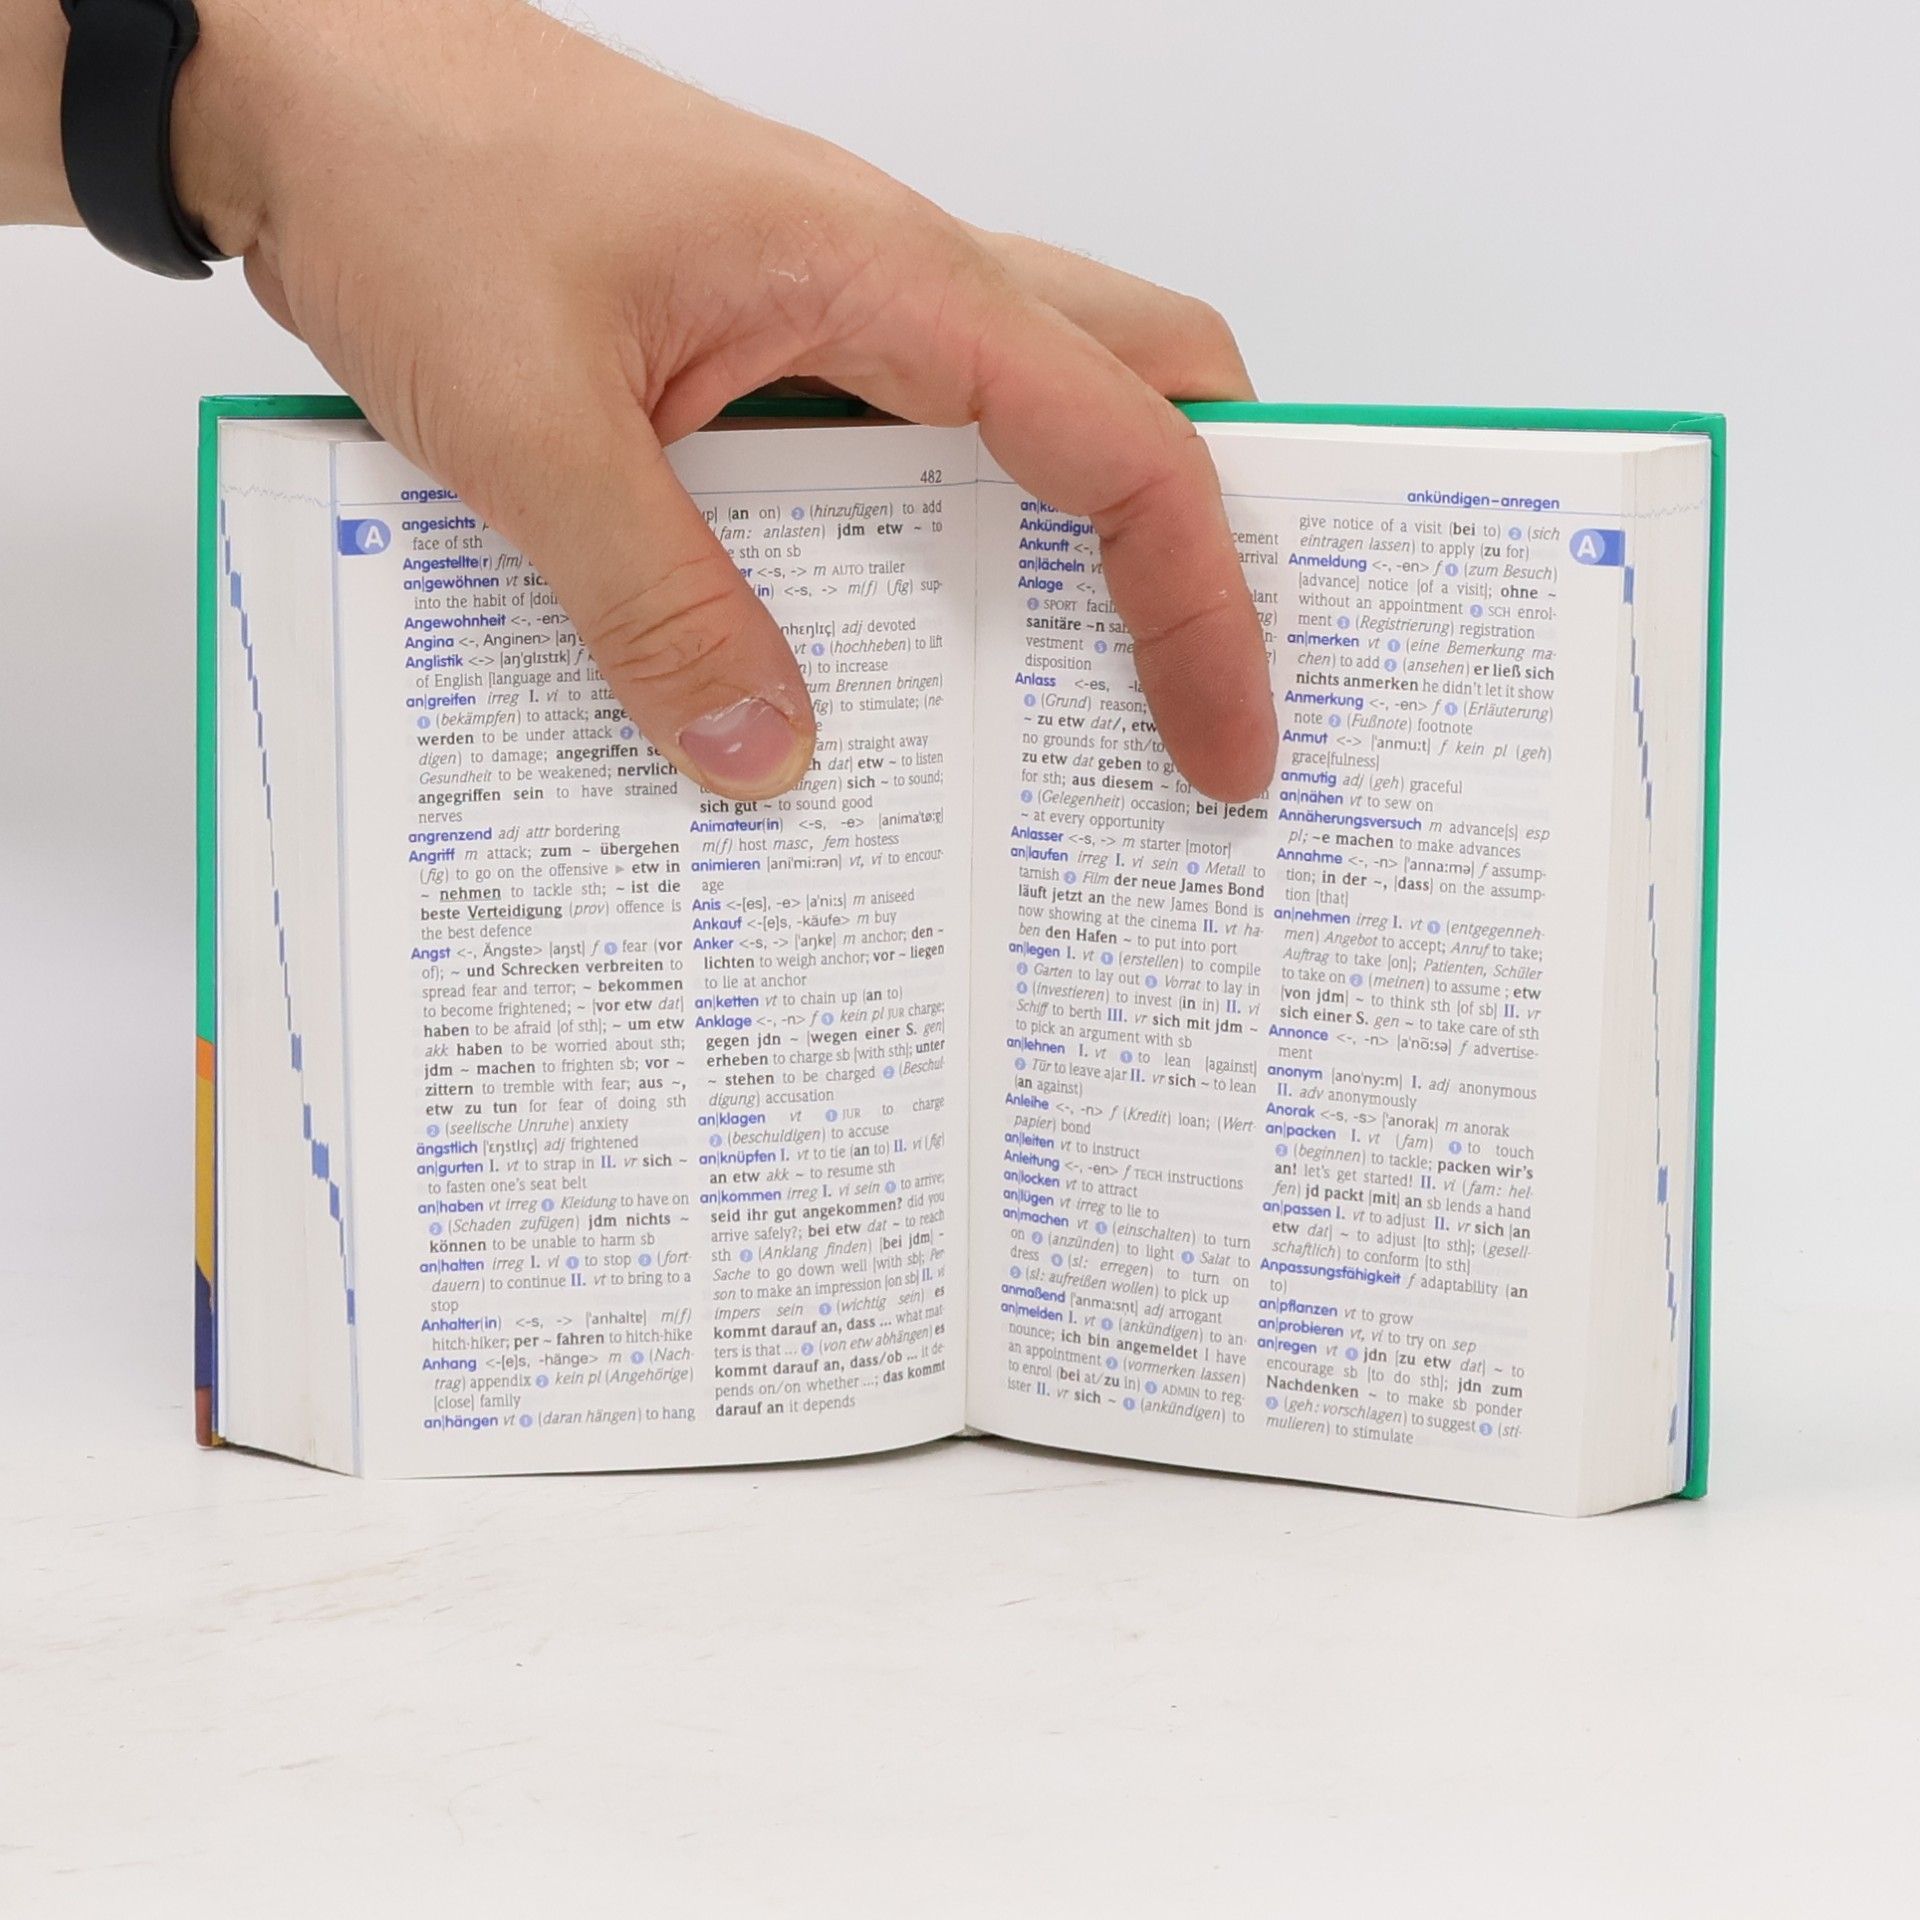 482
A
angesichts
face of sth
Angestellte(r) f(m)
an|gewöhnen vt
into the habit of
Angewohnheit <-, -en>
Angina <-, Anginen>
Anglistik <-> [aŋ'glɪstɪk] f
of English [language and
an|greifen irreg I. vi to
❶ (bekämpfen) to attack;
werden to be under attack ❷
digen) to damage; angegriffen
Gesundheit to be weakened; nervlich
angegriffen sein to have strained
nerves
angrenzend adj attr bordering
Angriff m attack; zum ~ übergehen
(fig) to go on the offensive ▶ etw in
~ nehmen to tackle sth; ~ ist die
beste Verteidigung (prov) offence is
the best defence
Angst <-, Ängste> [aŋst] f ❶ fear (vor
of); ~ und Schrecken verbreiten to
spread fear and terror; ~ bekommen
to become frightened; ~ [vor etw dat]
haben to be afraid [of sth]; ~ um etw
akk haben to be worried about sth;
jdm ~ machen to frighten sb; vor ~
zittern to tremble with fear; aus ~,
etw zu tun for fear of doing sth
❷ (seelische Unruhe) anxiety
ängstlich ['ɛŋstlɪç] adj frightened
an|gurten I. vt to strap in II. vr sich ~
to fasten one's seat belt
an|haben vt irreg ❶ Kleidung to have on
❷ (Schaden zufügen) jdm nichts ~
können to be unable to harm sb
an|halten irreg I. vi ❶ to stop ❷ (fort-
dauern) to continue II. vt to bring to a
stop
Anhalter(in) <-s, -> ['anhaltɐ] m(f)
hitch-hiker; per ~ fahren to hitch-hike
Anhang <-[e]s, -hänge> m ❶ (Nach-
trag) appendix ❷ kein pl (Angehörige)
[close] family
an|hängen vt ❶ (daran hängen) to hang
(an on) ❷ (hinzufügen) to add
fam: anlasten) jdm etw ~ to
sth on sb
<-s, -> m AUTO trailer
<-s, -> m(f) (fig) sup-
adj devoted
vt ❶ (hochheben) to lift
to increase
Brennen bringen)
to stimulate; (ne-
straight away
dat] etw ~ to listen
sich ~ to sound;
sich gut ~ to sound good
Animateur(in) <-s, -e> [anima'tøːɐ̯]
m(f) host masc, fem hostess
animieren [ani'miːrən] vt, vi to encour-
age
Anis <-[es], -e> [a'niːs] m aniseed
Ankauf <-[e]s, -käufe> m buy
Anker <-s, -> ['aŋkɐ] m anchor; den ~
lichten to weigh anchor; vor ~ liegen
to lie at anchor
an|ketten vt to chain up (an to)
Anklage <-, -n> f ❶ kein pl JUR charge;
gegen jdn ~ [wegen einer S. gen]
erheben to charge sb [with sth]; unter
~ stehen to be charged ❷ (Beschul-
digung) accusation
an|klagen vt ❶ JUR to charge
❷ (beschuldigen) to accuse
an|knüpfen I. vt to tie (an to) II. vi (fig)
an etw akk ~ to resume sth
an|kommen irreg I. vi sein ❶ to arrive;
seid ihr gut angekommen? did you
arrive safely?; bei etw dat ~ to reach
sth ❷ (Anklang finden) [bei jdm] ~
Sache to go down well [with sb]; Per
son to make an impression [on sb] II. vi
impers sein ❶ (wichtig sein) es
kommt darauf an, dass ... what mat-
ters is that ... ❷ (von etw abhängen) es
kommt darauf an, dass/ob ... it de-
pends on/on whether ...; das kommt
darauf an it depends
ankündigen–anregen
A
Ankunft <-,
arrival
an|lächeln vt
Anlage <-,
❷ SPORT
sanitäre ~n
vestment ❺
disposition
Anlass <-es,
❶ (Grund) reason;
~ zu etw dat/, etw
no grounds for sth/to
zu etw dat geben to
for sth; aus diesem ~ for
❷ (Gelegenheit) occasion; bei jedem
~ at every opportunity
Anlasser <-s, -> m starter [motor]
an|laufen irreg I. vi sein ❶ Metall to
tarnish ❷ Film der neue James Bond
läuft jetzt an the new James Bond is
now showing at the cinema II. vt ha-
ben den Hafen ~ to put into port
an|legen I. vt ❶ (erstellen) to compile
❷ Garten to lay out ❸ Vorrat to lay in
❹ (investieren) to invest (in in) II. vi
Schiff to berth III. vr sich mit jdm ~
to pick an argument with sb
an|lehnen I. vt ❶ to lean [against]
❷ Tür to leave ajar II. vr sich ~ to lean
(an against)
Anleihe <-, -n> f (Kredit) loan; (Wert-
papier) bond
an|leiten vt to instruct
Anleitung <-, -en> f TECH instructions
an|locken vt to attract
an|lügen vt irreg to lie to
an|machen vt ❶ (einschalten) to turn
on ❷ (anzünden) to light ❸ Salat to
dress ❹ (sl: erregen) to turn on
❺ (sl: aufreißen wollen) to pick up
anmaßend ['anmaːsnt] adj arrogant
an|melden I. vt ❶ (ankündigen) to an-
nounce; ich bin angemeldet I have
an appointment ❷ (vormerken lassen)
to enrol (bei at/zu in) ❸ ADMIN to reg-
ister II. vr sich ~ ❶ (ankündigen) to
give notice of a visit (bei to) ❷ (sich
eintragen lassen) to apply (zu for)
Anmeldung <-, -en> f ❶ (zum Besuch)
[advance] notice [of a visit]; ohne ~
without an appointment ❷ SCH enrol-
ment ❸ (Registrierung) registration
an|merken vt ❶ (eine Bemerkung ma-
chen) to add ❷ (ansehen) er ließ sich
nichts anmerken he didn't let it show
Anmerkung <-, -en> f ❶ (Erläuterung)
note ❷ (Fußnote) footnote
Anmut <-> ['anmuːt] f kein pl (geh)
grace[fulness]
anmutig adj (geh) graceful
an|nähen vt to sew on
Annäherungsversuch m advance[s] esp
pl; ~e machen to make advances
Annahme <-, -n> ['annaːmə] f assump-
tion; in der ~, [dass] on the assump-
tion [that]
an|nehmen irreg I. vt ❶ (entgegenneh-
men) Angebot to accept; Anruf to take;
Auftrag to take [on]; Patienten, Schüler
to take on ❷ (meinen) to assume ; etw
[von jdm] ~ to think sth [of sb] II. vr
sich einer S. gen ~ to take care of sth
Annonce <-, -n> [a'nõːsə] f advertise-
ment
anonym [ano'nyːm] I. adj anonymous
II. adv anonymously
Anorak <-s, -s> ['anorak] m anorak
an|packen I. vt (fam) ❶ to touch
❷ (beginnen) to tackle; packen wir's
an! let's get started! II. vi (fam: hel-
fen) jd packt [mit] an sb lends a hand
an|passen I. vt to adjust II. vr sich [an
etw dat] ~ to adjust [to sth]; (gesell-
schaftlich) to conform [to sth]
Anpassungsfähigkeit f adaptability (an
to)
an|pflanzen vt to grow
an|probieren vt, vi to try on sep
an|regen vt ❶ jdn [zu etw dat] ~ to
encourage sb [to do sth]; jdn zum
Nachdenken ~ to make sb ponder
❷ (geh: vorschlagen) to suggest ❸ (sti-
mulieren) to stimulate